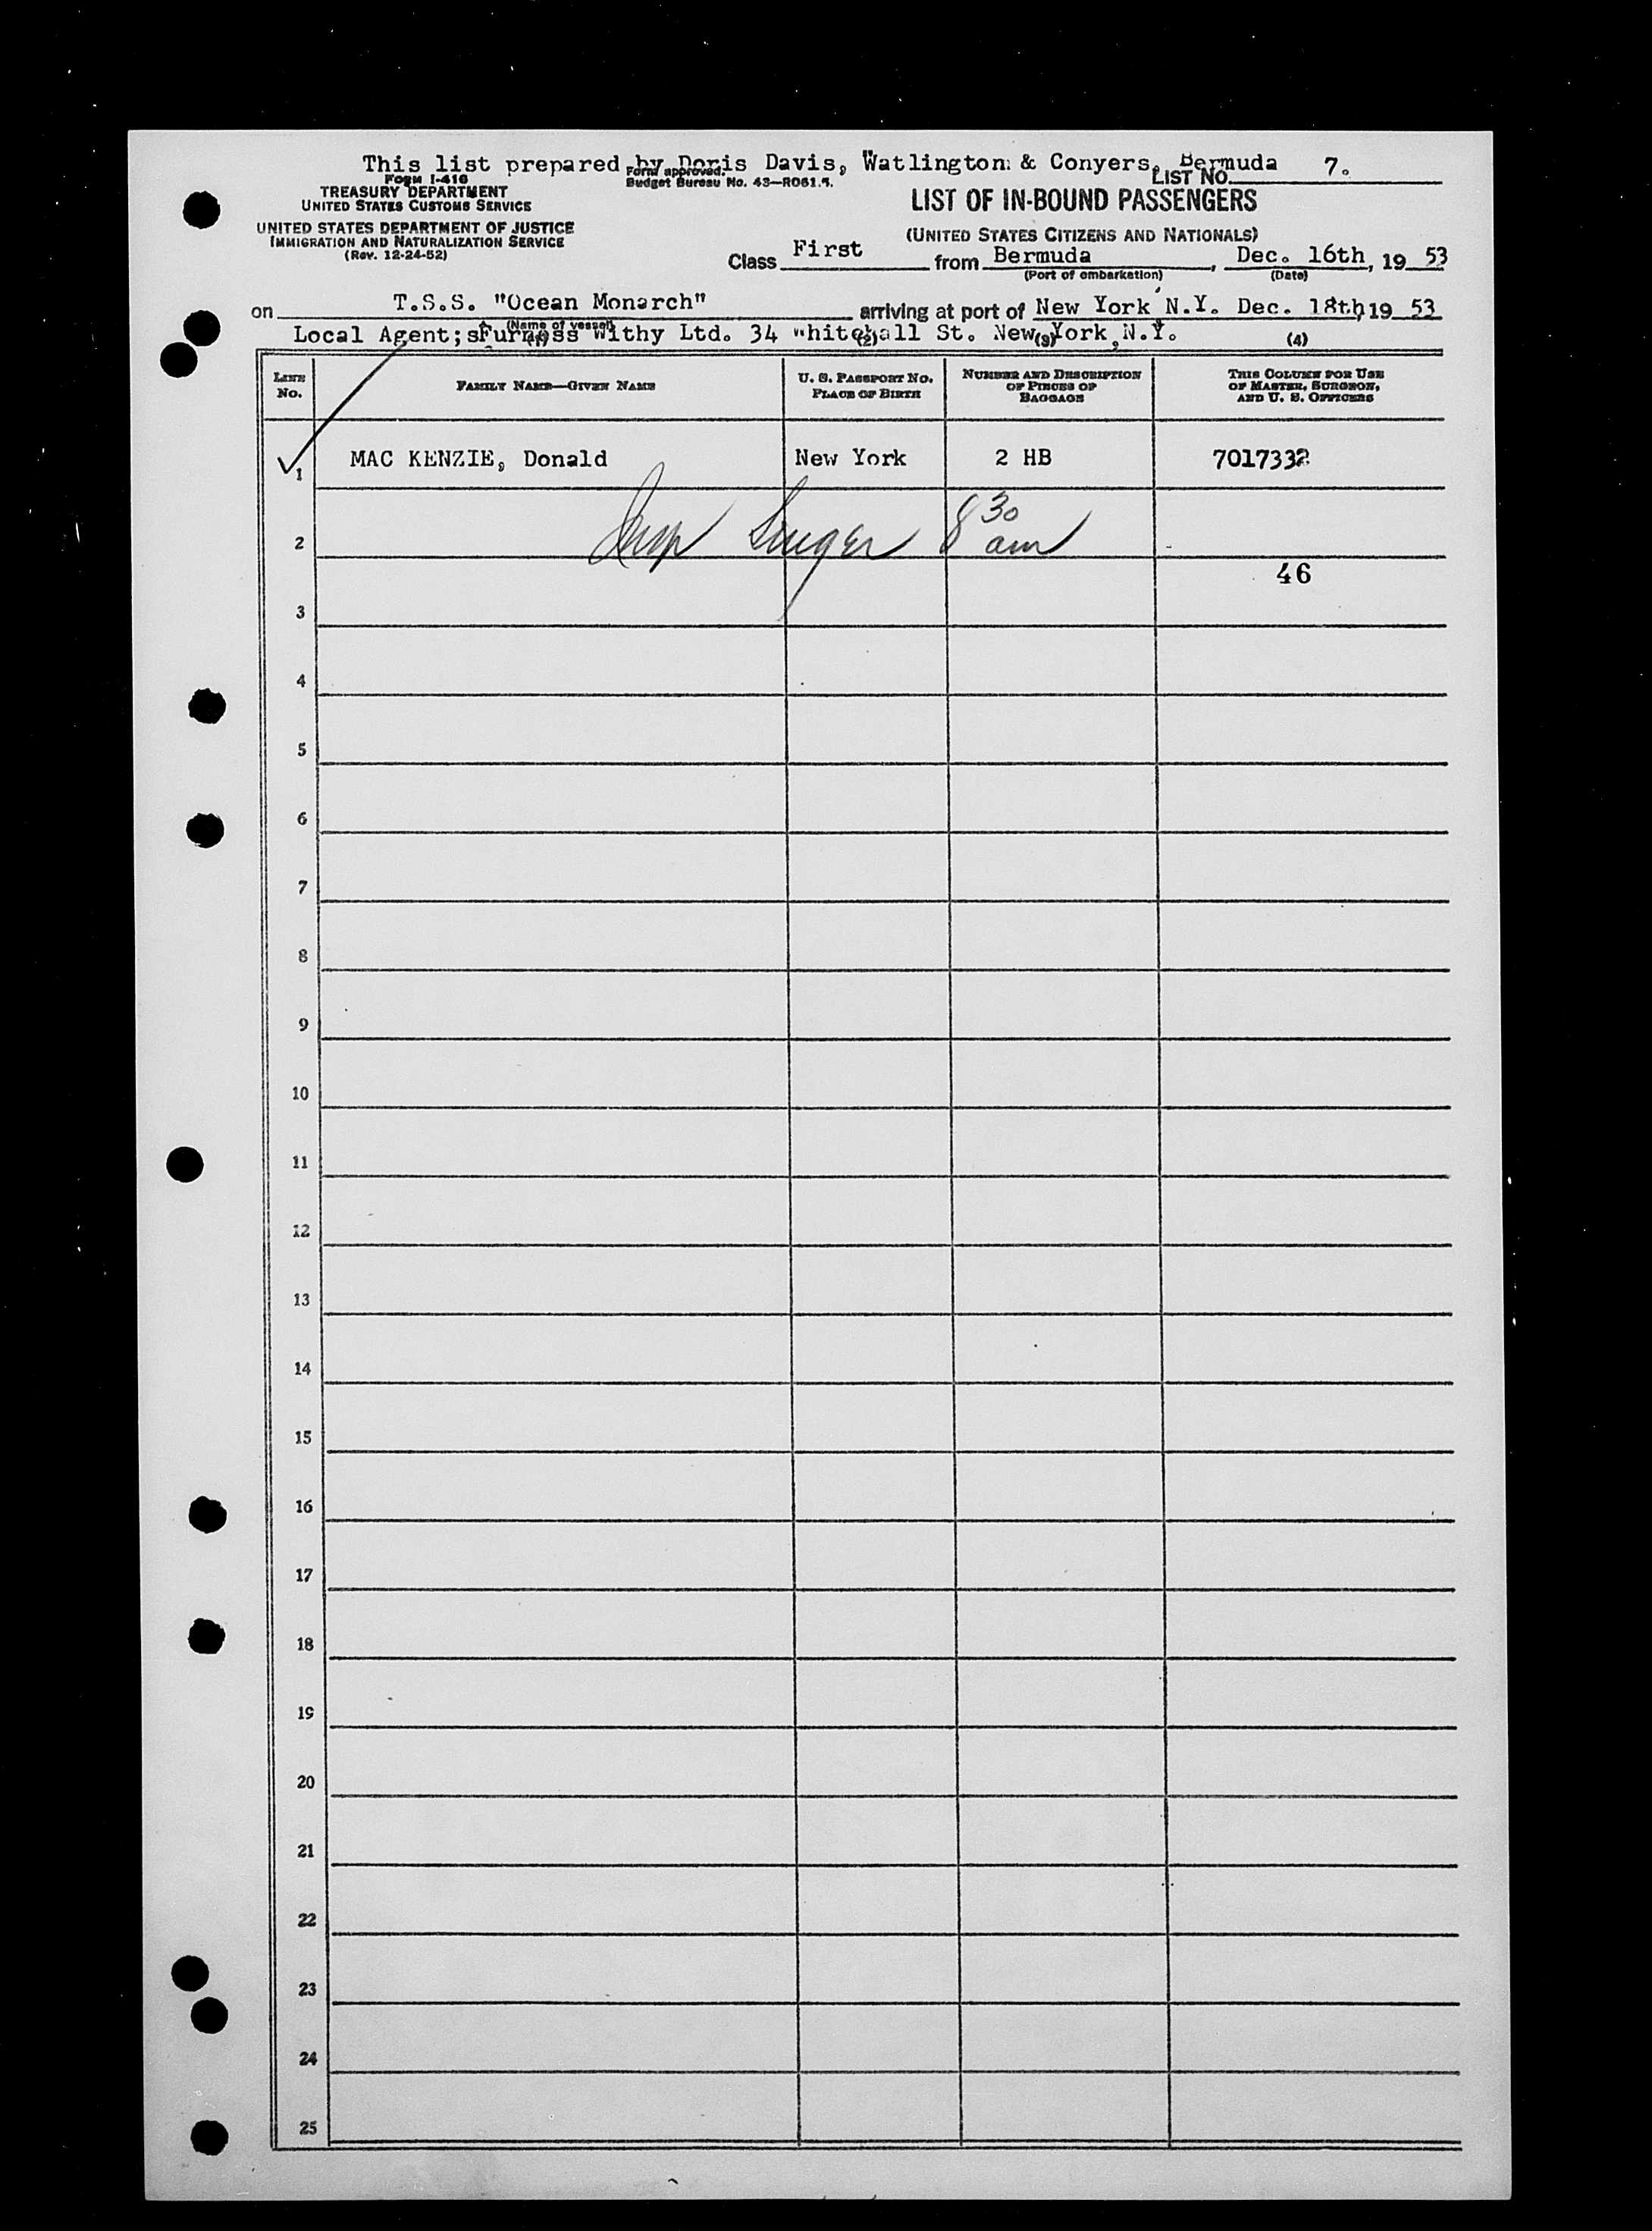 This list prepared by Doris Davis, Watlington & Conyers, Bermuda 7.
FORM I-418
Form approved.
LIST NO.
TREASURY DEPARTMENT
Budget Bureau No. 43—R061.5.
UNITED STATES CUSTOMS SERVICE
LIST OF IN-BOUND PASSENGERS
UNITED STATES DEPARTMENT OF JUSTICE
IMMIGRATION AND NATURALIZATION SERVICE
(UNITED STATES CITIZENS AND NATIONALS)
(Rev. 12-24-52)
Class First from Bermuda, Dec. 16th, 19 53
(Port of embarkation) (Date)
on T.S.S. "Ocean Monarch" arriving at port of New York N.Y. Dec. 18th, 19 53
(Name of vessel)
Local Agent;s Furness Withy Ltd. 34 Whitehall St. New York, N.Y.
(1) (2) (3) (4)
LINE NO.
FAMILY NAME—GIVEN NAME
U. S. PASSPORT NO.
PLACE OF BIRTH
NUMBER AND DESCRIPTION
OF PIECES OF
BAGGAGE
THIS COLUMN FOR USE
OF MASTER, SURGEON,
AND U. S. OFFICERS
1 MAC KENZIE, Donald New York 2 HB 7017332
Insp Singer 8 30 am
2
46
3
4
5
6
7
8
9
10
11
12
13
14
15
16
17
18
19
20
21
22
23
24
25